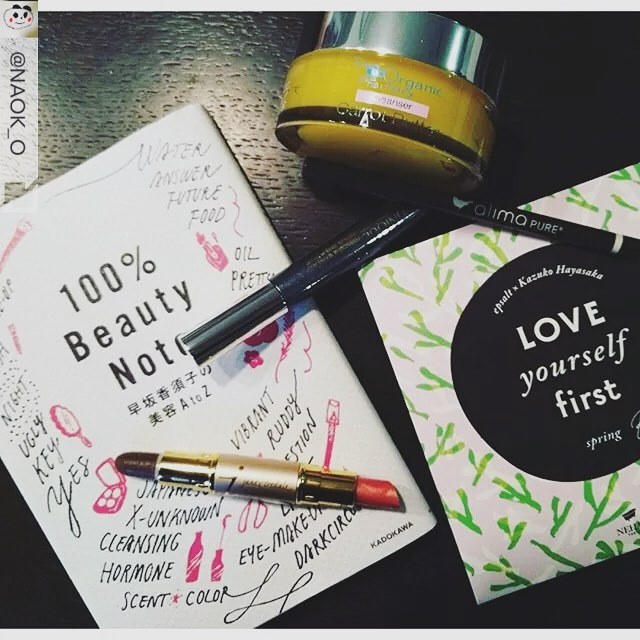 @NAOK_O
Organic
PHARMACY
Cleanser
Carrot Butter
alima PURE®
WATER
ANSWER
FUTURE
FOOD
OIL
PRETTY
100%
Beauty
Note
早坂香須子の
美容 A to Z
NIGHT
UGLY
KEY
YES
VIBRANT
RUDDY
JAPANESE
X-UNKNOWN
CLEANSING
HORMONE
SCENT
COLOR
EYE-MAKEUP
DARKCIRCLE
KADOKAWA
epsalt × Kazuko Hayasaka
LOVE
yourself
first
spring